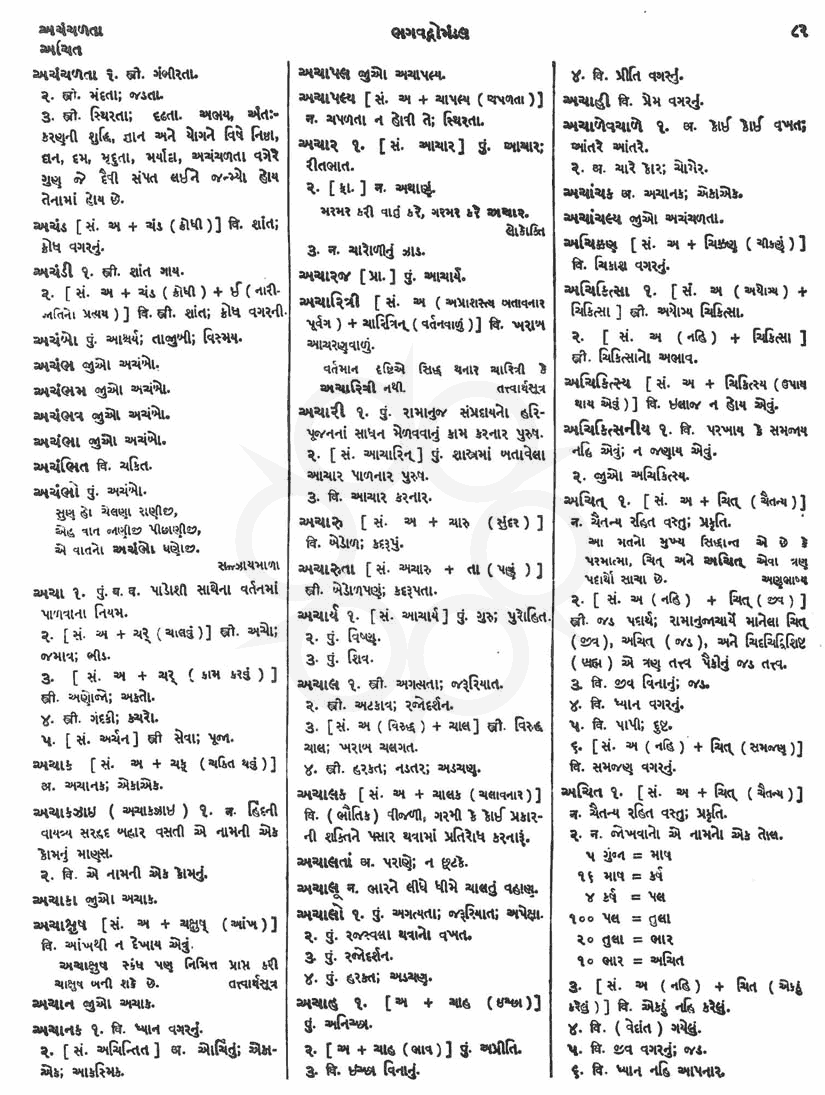 અચંચળતા
અચિત
ભગવદ્ગોમંડલ
૮૨
અચંચળતા ૧. સ્ત્રી. ગંભીરતા.
૨. સ્ત્રી. મંદતા; જડતા.
૩. સ્ત્રી. સ્થિરતા; દૃઢતા. અભય, અંતઃ-
કરણની શુદ્ધિ, જ્ઞાન અને યોગને વિષે નિષ્ઠા,
દાન, દમ, મૃદુતા, મર્યાદા, અચંચળતા વગેરે
ગુણ જે દૈવી સંપત લઈને જન્મ્યો હોય
તેનામાં હોય છે.
અચંડ [ સં. અ + ચંડ ( ક્રોધી ) ] વિ. શાંત;
ક્રોધ વગરનું.
અચંડી ૧. સ્ત્રી. શાંત ગાય.
૨. [ સં. અ + ચંડ ( ક્રોધી ) + ઈ ( નારી-
જાતિનો પ્રત્યય ) ] વિ. સ્ત્રી. શાંત; ક્રોધ વગરની.
અચંબો પું. આશ્ચર્ય; તાજુબી; વિસ્મય.
અચંભ જુઓ અચંબો.
અચંભમ જુઓ અચંબો.
અચંભવ જુઓ અચંબો.
અચંભા જુઓ અચંબો.
અચંભિત વિ. ચકિત.
અચંભો પું. અચંબો.
સુણ હો ચેલણા રાણીજી,
એહ વાત જાણીજી પીછાણીજી,
એ વાતનો અચંભો ઘણોજી.
સજ્ઝાયમાળા
અચા ૧. પું. બ. વ. પાડોશી સાથેના વર્તનમાં
પાળવાના નિયમ.
૨. [ સં. અ + ચર્ ( ચાલવું ) ] સ્ત્રી. અચો;
જમાવ; ભીડ.
૩. [ સં. અ + ચર્ ( કામ કરવું ) ]
સ્ત્રી. અણોજો; અકતો.
૪. સ્ત્રી. ગંદકી; કચરો.
૫. [ સં. અર્ચન ] સ્ત્રી સેવા; પૂજા.
અચાક [ સં. અ + ચક્ ( ચકિત થવું ) ]
અ. અચાનક; એકાએક.
અચાકઝાઇ ( અચાકઝાઇ ) ૧. ન. હિંદની
વાયવ્ય સરહદ બહાર વસતી એ નામની એક
કોમનું માણસ.
૨. વિ. એ નામની એક કોમનું.
અચાકા જુઓ અચાક.
અચાક્ષુષ [ સં. અ + ચક્ષુષ્ ( આંખ ) ]
વિ. આંખથી ન દેખાય એવું.
અચાક્ષુષ સ્કંધ પણ નિમિત્ત પ્રાપ્ત કરી
ચાક્ષુષ બની શકે છે. તત્ત્વાર્થસૂત્ર
અચાન જુઓ અચાક.
અચાનક ૧. વિ. ધ્યાન વગરનું.
૨. [ સં. અચિન્તિત ] અ. ઓચિંતું; એકા-
એક; આકસ્મિક.
અચાપલ જુઓ અચાપલ્ય.
અચાપલ્ય [ સં. અ + ચાપલ્ય ( ચપળતા ) ]
ન. ચપળતા ન હોવી તે; સ્થિરતા.
અચાર ૧. [ સં. આચાર ] પું. આચાર;
રીતભાત.
૨. [ ફા. ] ન. અથાણું.
મરમર કરી વાતું કરે, ગરમર કરે અચાર.
લોકોક્તિ
૩. ન. ચારોળીનું ઝાડ.
અચારજ [ પ્રા. ] પું. આચાર્ય.
અચારિત્રી [ સં. અ ( અપ્રાશસ્ત્ય બતાવનાર
પૂર્વગ ) + ચારિત્રિન્ ( વર્તનવાળું ) ] વિ. ખરાબ
આચરણવાળું.
વર્તમાન દૃષ્ટિએ સિદ્ધ થનાર ચારિત્રી કે
અચારિત્રી નથી. તત્ત્વાર્થસૂત્ર
અચારી ૧. પું. રામાનુજ સંપ્રદાયનો હરિ-
પૂજનનાં સાધન મેળવવાનું કામ કરનાર પુરુષ.
૨. [ સં. આચારિન્ ] પું. શાસ્ત્રમાં બતાવેલા
આચાર પાળનાર પુરુષ.
૩. વિ. આચાર કરનાર.
અચારુ [ સં. અ + ચારુ ( સુંદર ) ]
વિ. બેડોળ; કદરૂપું.
અચારુતા [ સં. અચારુ + તા ( પણું ) ]
સ્ત્રી. બેડોળપણું; કદરૂપતા.
અચાર્ય ૧. [ સં. આચાર્ય ] પું. ગુરુ; પુરોહિત.
૨. પું. વિષ્ણુ.
૩. પું. શિવ.
અચાલ ૧. સ્ત્રી. અગત્યતા; જરૂરિયાત.
૨. સ્ત્રી. અટકાવ; રજોદર્શન.
૩. [ સં. અ ( વિરુદ્ધ ) + ચાલ ] સ્ત્રી. વિરુદ્ધ
ચાલ; ખરાબ ચલગત.
૪. સ્ત્રી. હરકત; નડતર; અડચણ.
અચાલક [ સં. અ + ચાલક ( ચલાવનાર ) ]
વિ. ( ભૌતિક ) વીજળી, ગરમી કે કોઈ પ્રકાર-
ની શક્તિને પસાર થવામાં પ્રતિરોધ કરનારું.
અચાલતાં અ. પરાણે; ન છૂટકે.
અચાલૂ ન. ભારને લીધે ધીમે ચાલતું વહાણ.
અચાલો ૧. પું. અગત્યતા; જરૂરિયાત; અપેક્ષા.
૨. પું. રજસ્વલા થવાનો વખત.
૩. પું. રજોદર્શન.
૪. પું. હરકત; અડચણ.
અચાહ ૧. [ અ + ચાહ ( ઇચ્છા ) ]
પું. અનિચ્છા.
૨. [ અ + ચાહ ( ભાવ ) ] પું. અપ્રીતિ.
૩. વિ. ઇચ્છા વિનાનું.
૪. વિ. પ્રીતિ વગરનું.
અચાહી વિ. પ્રેમ વગરનું.
અચાળેવચાળે ૧. અ. કોઈ કોઈ વખત;
આંતરે આંતરે.
૨. અ. ચારે કોર; ચોગેર.
અચાંચક અ. અચાનક; એકાએક.
અચાંચલ્ય જુઓ અચંચળતા.
અચિક્કણ [ સં. અ + ચિક્કણ ( ચીકણું ) ]
વિ. ચિકાશ વગરનું.
અચિકિત્સા ૧. [ સં. અ ( અયોગ્ય ) +
ચિકિત્સા ] સ્ત્રી. અયોગ્ય ચિકિત્સા.
૨. [ સં. અ ( નહિ ) + ચિકિત્સા ]
સ્ત્રી. ચિકિત્સાનો અભાવ.
અચિકિત્સ્ય [ સં. અ + ચિકિત્સ્ય ( ઉપાય
થાય એવું ) ] વિ. ઇલાજ ન હોય એવું.
અચિકિત્સનીય ૧. વિ. પરખાય કે સમજાય
નહિ એવું; ન જણાય એવું.
૨. જુઓ અચિકિત્સ્ય.
અચિત્ ૧. [ સં. અ + ચિત્ ( ચૈતન્ય ) ]
ન. ચૈતન્ય રહિત વસ્તુ; પ્રકૃતિ.
આ મતનો મુખ્ય સિદ્ધાન્ત એ છે કે
પરમાત્મા, ચિત્ અને અચિત્ એવા ત્રણ
પદાર્થો સાચા છે. અણુભાષ્ય
૨. [ સં. અ ( નહિ ) + ચિત્ ( જીવ ) ]
સ્ત્રી. જડ પદાર્થ; રામાનુજાચાર્યે માનેલા ચિત્
( જીવ ), અચિત ( જડ ), અને ચિદચિદ્વિશિષ્ટ
( બ્રહ્મ ) એ ત્રણ તત્ત્વ પૈકીનું જડ તત્ત્વ.
૩. વિ. જીવ વિનાનું; જડ.
૪. વિ. ધ્યાન વગરનું.
૫. વિ. પાપી; દુષ્ટ.
૬. [ સં. અ ( નહિ ) + ચિત્ ( સમજણ ) ]
વિ. સમજણ વગરનું.
અચિત ૧. [ સં. અ + ચિત્ ( ચૈતન્ય ) ]
ન. ચૈતન્ય રહિત વસ્તુ; પ્રકૃતિ.
૨. ન. જોખવાનો એ નામનો એક તોલ.
૫ ગુંજા = માષ
૧૬ માષ = કર્ષ
૪ કર્ષ = પલ
૧૦૦ પલ = તુલા
૨૦ તુલા = ભાર
૧૦ ભાર = અચિત
૩. [ સં. અ ( નહિ ) + ચિત ( એકઠું
કરેલું ) ] વિ. એકઠું નહિ કરેલું.
૪. વિ. ( વેદાંત ) ગયેલું.
૫. વિ. જીવ વગરનું; જડ.
૬. વિ. ધ્યાન નહિ આપનાર.